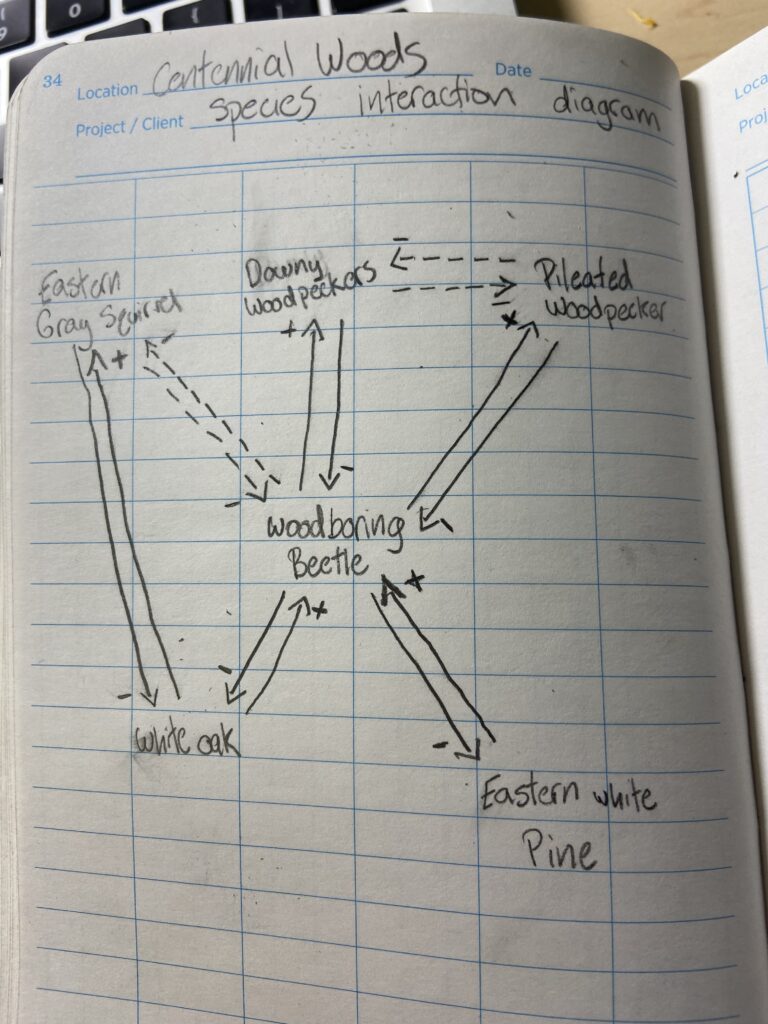 34
Location Centennial Woods Date
Project / Client species interaction diagram
Eastern
Gray Squirrel
Downy
Woodpeckers
Pileated
Woodpecker
+
-
-
-
+
+
-
-
-
Woodboring
Beetle
-
+
+
-
-
White oak
Eastern white
Pine
Loca
Proj